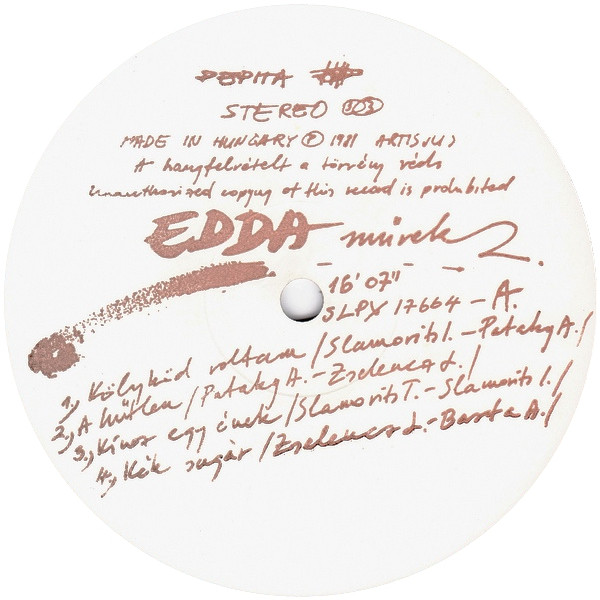 PEPITA
STEREO 303
MADE IN HUNGARY Ⓟ 1981 ARTISJUS
A hangfelvételt a törvény védi
Unauthorized copying of this record is prohibited
EDDA művek 2.
16'07"
SLPX 17664 - A.
1., Kölyköd voltam / Slamovits I. - Pataky A. /
2., A hűtlen / Pataky A. - Zselencz L. /
3., Kínoz egy ének / Slamovits T. - Slamovits I. /
4., Kék sugár / Zselencz L. - Barta A. /